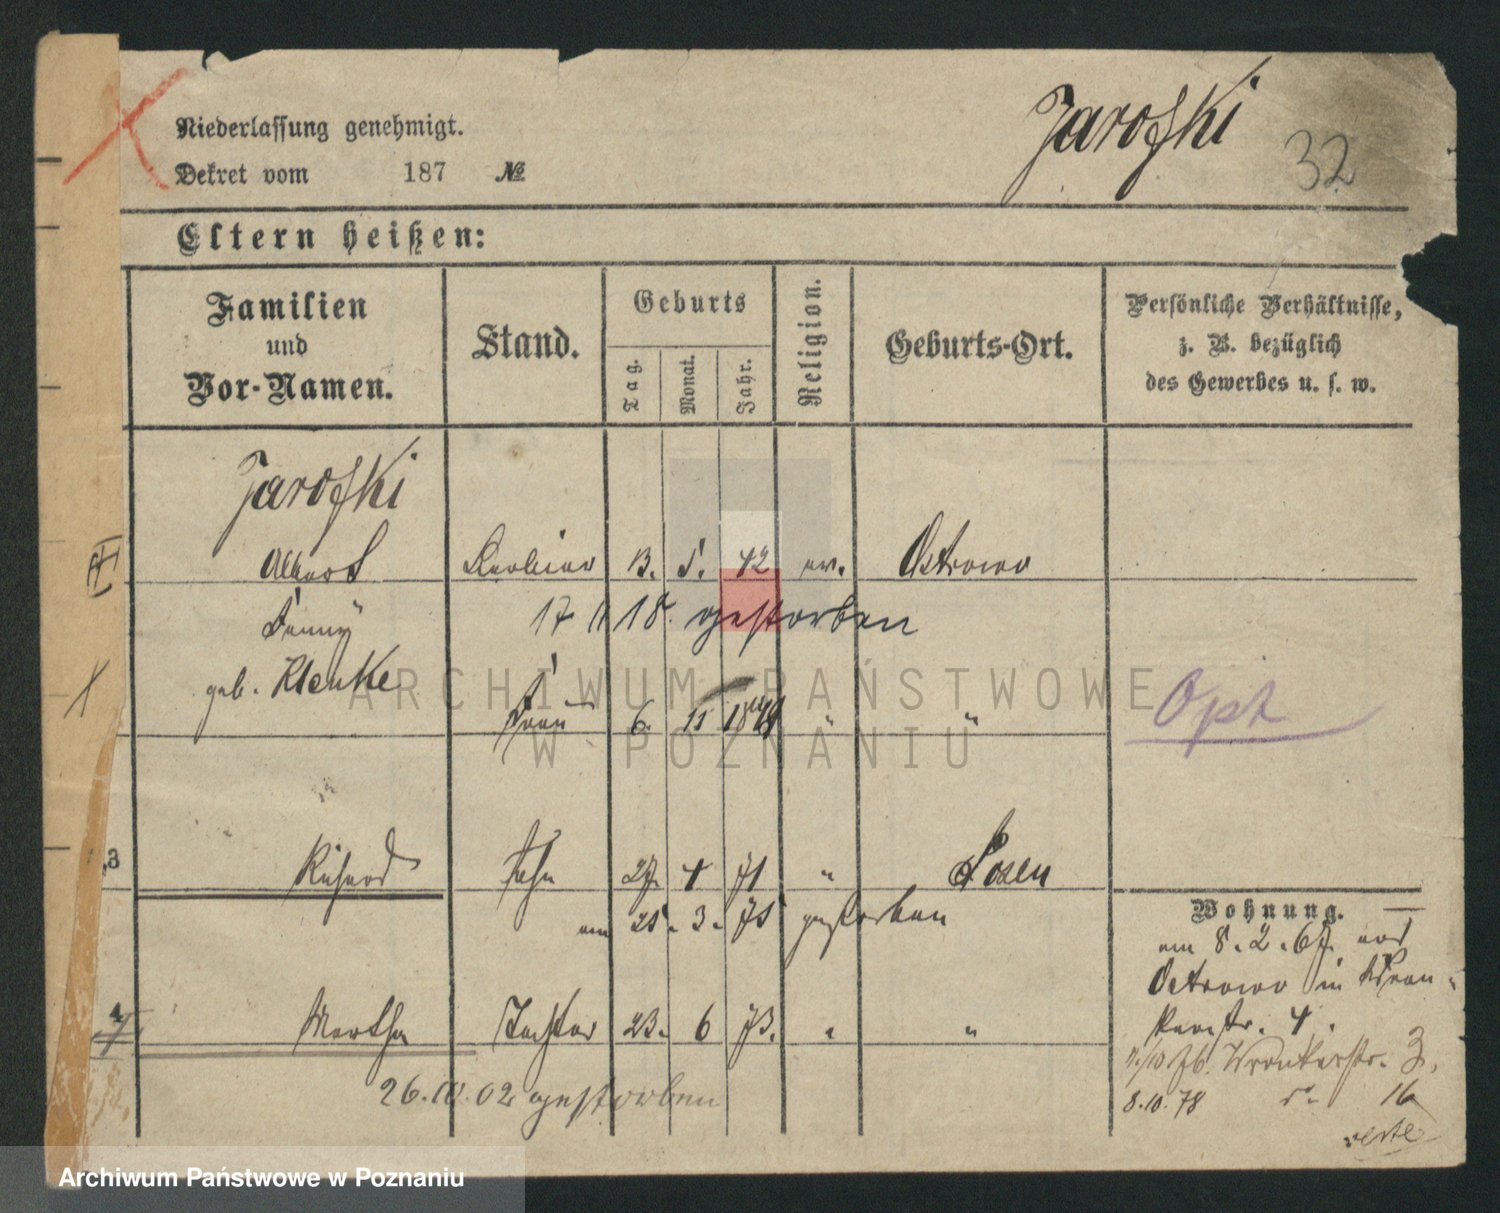 Jarofski
32
Niederlassung genehmigt.
Dekret vom 187 №
Eltern heißen:
Familien und Vor-Namen.
Stand.
Geburts
Tag.
Monat.
Jahr.
Religion.
Geburts-Ort.
Persönliche Verhältnisse,
z. B. bezüglich
des Gewerbes u. s. w.
Jarofski
Albert 13. 5. 42 ev. Ostrowo
17 11 18. gestorben
Fanny
geb. Klenke
Frau 6. 11 " "
Opt
3 Richard Sohn 27. 4 71 " Posen
am 25. 3. 75 gestorben
Wohnung.
am 8. 2. 67. aus
Ostrowo in
4 Martha Tochter 23. 6 73. " "
4.
Wronkerstr. 3,
8.10.78 16
26.10.02 gestorben
verte
ARCHIWUM PAŃSTWOWE
W POZNANIU
Archiwum Państwowe w Poznaniu